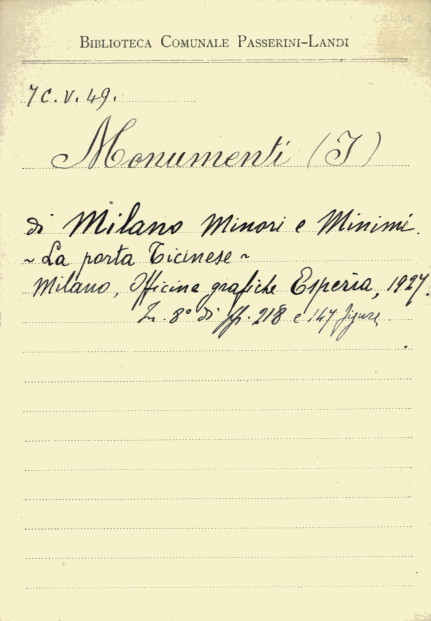 BIBLIOTECA COMUNALE PASSERINI-LANDI
7C.V.49.
Monumenti (I)
di Milano Minori e Minimi.
~ La porta Ticinese ~
Milano, Officine grafiche Esperia, 1927.
In 8° di pp. 218 e 147 figure